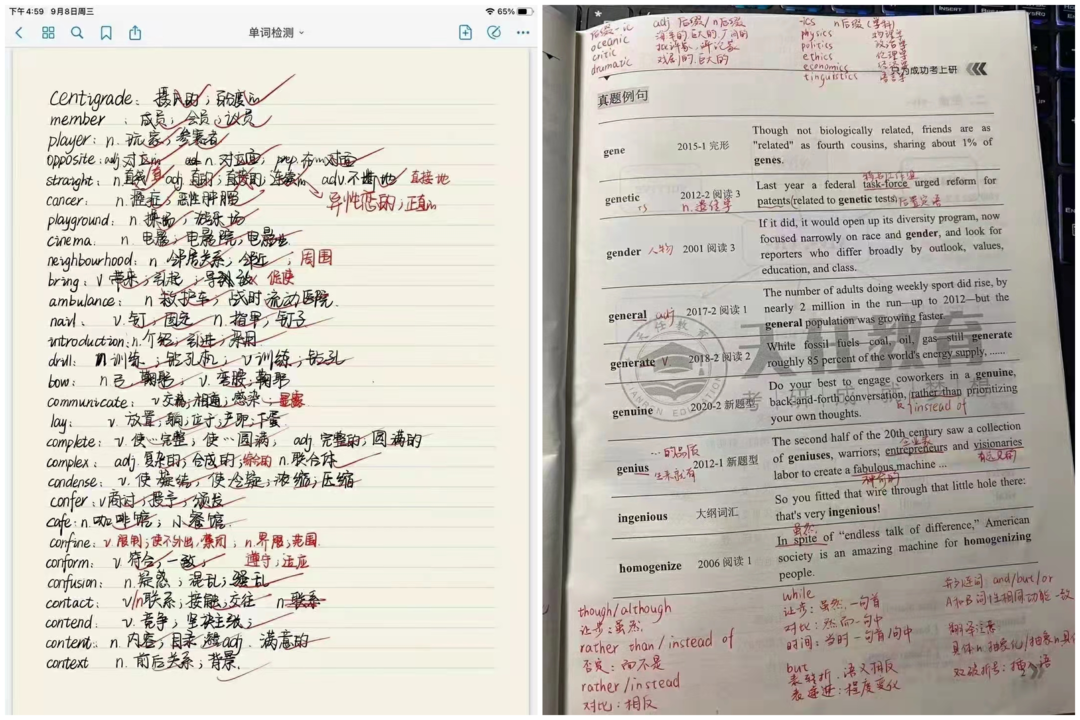 下午4:59 9月8日周三
65%
单词检测
centigrade: 摄氏的;百分度的
member : 成员;会员;议员
player: n. 玩家;参赛者
opposite: adj 对立的 n. 对立面; prep. 在…对面
straight: n. 直线 adj 直的;直接的;连续的 adv. 不断地 直接地
异性恋的;正直的
cancer: n. 癌症;恶性肿瘤
playground: n 操场;娱乐场
cinema: n 电影;电影院;电影业
neighbourhood: n 邻居关系;邻近 ; 周围
bring: v 带来;引起;导致 促使
ambulance: n 救护车;战时流动医院
nail: v. 钉;固定 n. 指甲;钉子
introduction: n. 介绍;引进;采用
drill: n 训练;钻孔机; v 训练;钻孔
bow: n 弓;鞠躬; v. 弯腰;鞠躬
communicate: v 交流;相通;感染;
lay: v. 放置;
complete: v 使…完整,使…圆满, adj 完整的;圆满的
complex: adj. 复杂的;合成的;综合的 n. 联合体
condense: v. 使凝结;使冷凝;浓缩;压缩
confer: v 商讨;授予;颁发
cafe: n. 咖啡馆;小餐馆
confine: v 限制;使不外出;禁闭; n. 界限;范围
conform: v. 符合;一致; 遵守;适应
confusion: n. 疑惑;混乱;骚乱
contact: v/n 联系;接触;交往 n. 联系
contend: v. 竞争;坚决主张;
content: n. 内容;目录; adj. 满意的
context n. 前后关系;背景
后缀-ic adj 后缀/n后缀 -ics n后缀(学科)
oceanic 海洋的,巨大的,广阔的 physics 物理学
critic 批评家,评论家 politics 政治学
dramatic 戏剧的,巨大的 ethics 伦理学
economics 经济学
linguistics 语言学
只为成功考上研
真题例句
gene 2015-1 完形 Though not biologically related, friends are as
"related" as fourth cousins, sharing about 1% of
genes.
genetic 2012-2 阅读 3 Last year a federal task-force urged reform for
patents related to genetic tests. 后置定语
rs n.遗传学
gender 人物 2001 阅读 3 If it did, it would open up its diversity program, now
focused narrowly on race and gender, and look for
reporters who differ broadly by outlook, values,
education, and class.
general adj 2017-2 阅读 1 The number of adults doing weekly sport did rise, by
nearly 2 million in the run—up to 2012—but the
general population was growing faster.
generate v 2018-2 阅读 2 While fossil fuels—coal, oil, gas—still generate
roughly 85 percent of the world's energy supply, ......
genuine 2020-2 新题型 Do your best to engage coworkers in a genuine,
back-and-forth conversation, rather than prioritizing
your own thoughts. instead of
…的品质
genius 2012-1 新题型 The second half of the 20th century saw a collection
生来就有 of geniuses, warriors; entrepreneurs and visionaries
企业家 有远见的
labor to create a fabulous machine ...
神奇的
ingenious 大纲词汇 So you fitted that wire through that little hole there:
that's very ingenious!
虽然
homogenize 2006 阅读 1 In spite of “endless talk of difference,” American
society is an amazing machine for homogenizing
people.
天任教育
TIANREN EDUCATION
though/although
让步:虽然
rather than/instead of
否定:而不是
rather/instead
对比:相反
while
让步:虽然—句首
对比:然而—句中
时间:当时—句首/句中
but
表转折,语义相反
表递进:程度变化
并列连词: and/but/or
A和B词性相同功能一致
翻译注意:
具体n抽象化/抽象n具体
双破折号:插入语